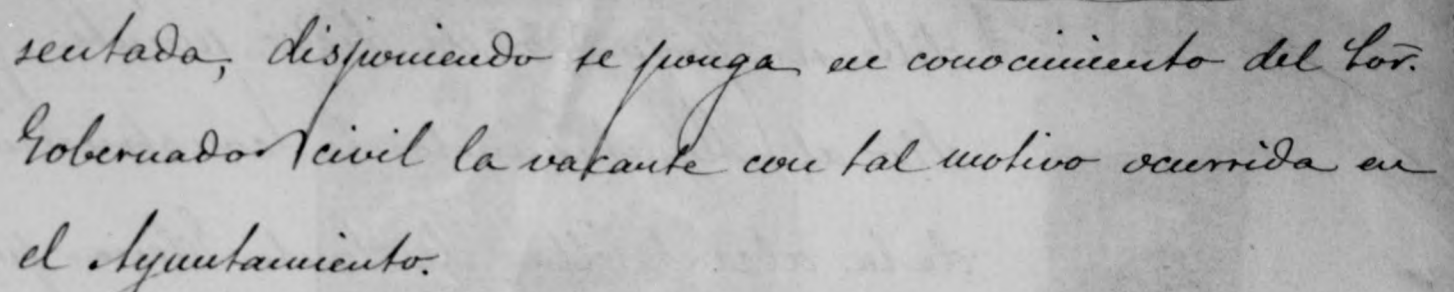 sentada, disponiendo se ponga en conocimiento del Sor.
Gobernador civil la vacante con tal motivo ocurrida en
el Ayuntamiento.